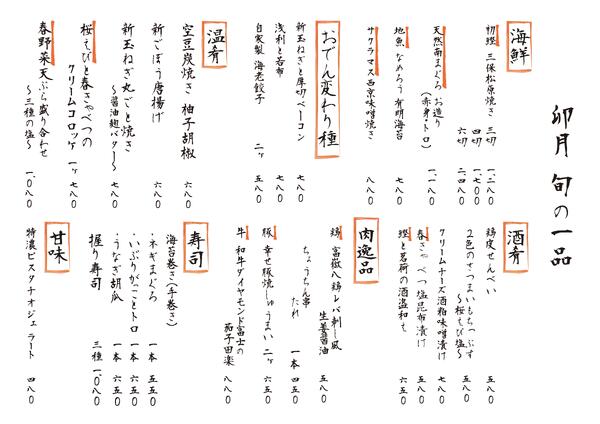 卯月 旬の一品
海鮮
初鰹 三保松原焼き 三切 一、二八〇
四切 一、七〇〇
六切 二、四八〇
天然南まぐろ お造り
(赤身・トロ) 一、一八〇
地魚 なめろう 有明海苔 七八〇
サクラマス西京味噌焼き 八八〇
おでん変わり種
新玉ねぎと厚切ベーコン 七八〇
浅利と若布 七八〇
自家製 海老餃子 二ヶ 五八〇
温肴
空豆炭焼き 柚子胡椒 六八〇
新ごぼう唐揚げ 六八〇
新玉ねぎ丸ごと焼き
〜醤油麹バター〜 七八〇
桜えびと春きゃべつの
クリームコロッケ 一ヶ 七八〇
春野菜天ぷら盛り合わせ
〜三種の塩〜 一、〇八〇
酒肴
鶏皮せんべい 五五〇
2色のさつまいもちっぷす
〜桜えび塩〜 五八〇
クリームチーズ酒粕味噌漬け 七八〇
春きゃべつ塩昆布漬け 五八〇
鰹と茗荷の酒盗和え 六五〇
肉逸品
鶏 富嶽八鶏レバ刺し風
生姜醤油 五八〇
ちょうちん串
たれ 一本 四五〇
豚 幸せ豚焼しゅうまい 二ヶ 六五〇
牛 和牛ダイヤモンド富士の
茄子田楽 八八〇
寿司
海苔巻き(手巻き)
・ネギまぐろ 一本 五五〇
・いぶりがっことトロ 一本 六五〇
・うなぎ胡瓜 一本 六五〇
握り寿司 三種 一、〇八〇
甘味
特濃ピスタチオジェラート 四八〇